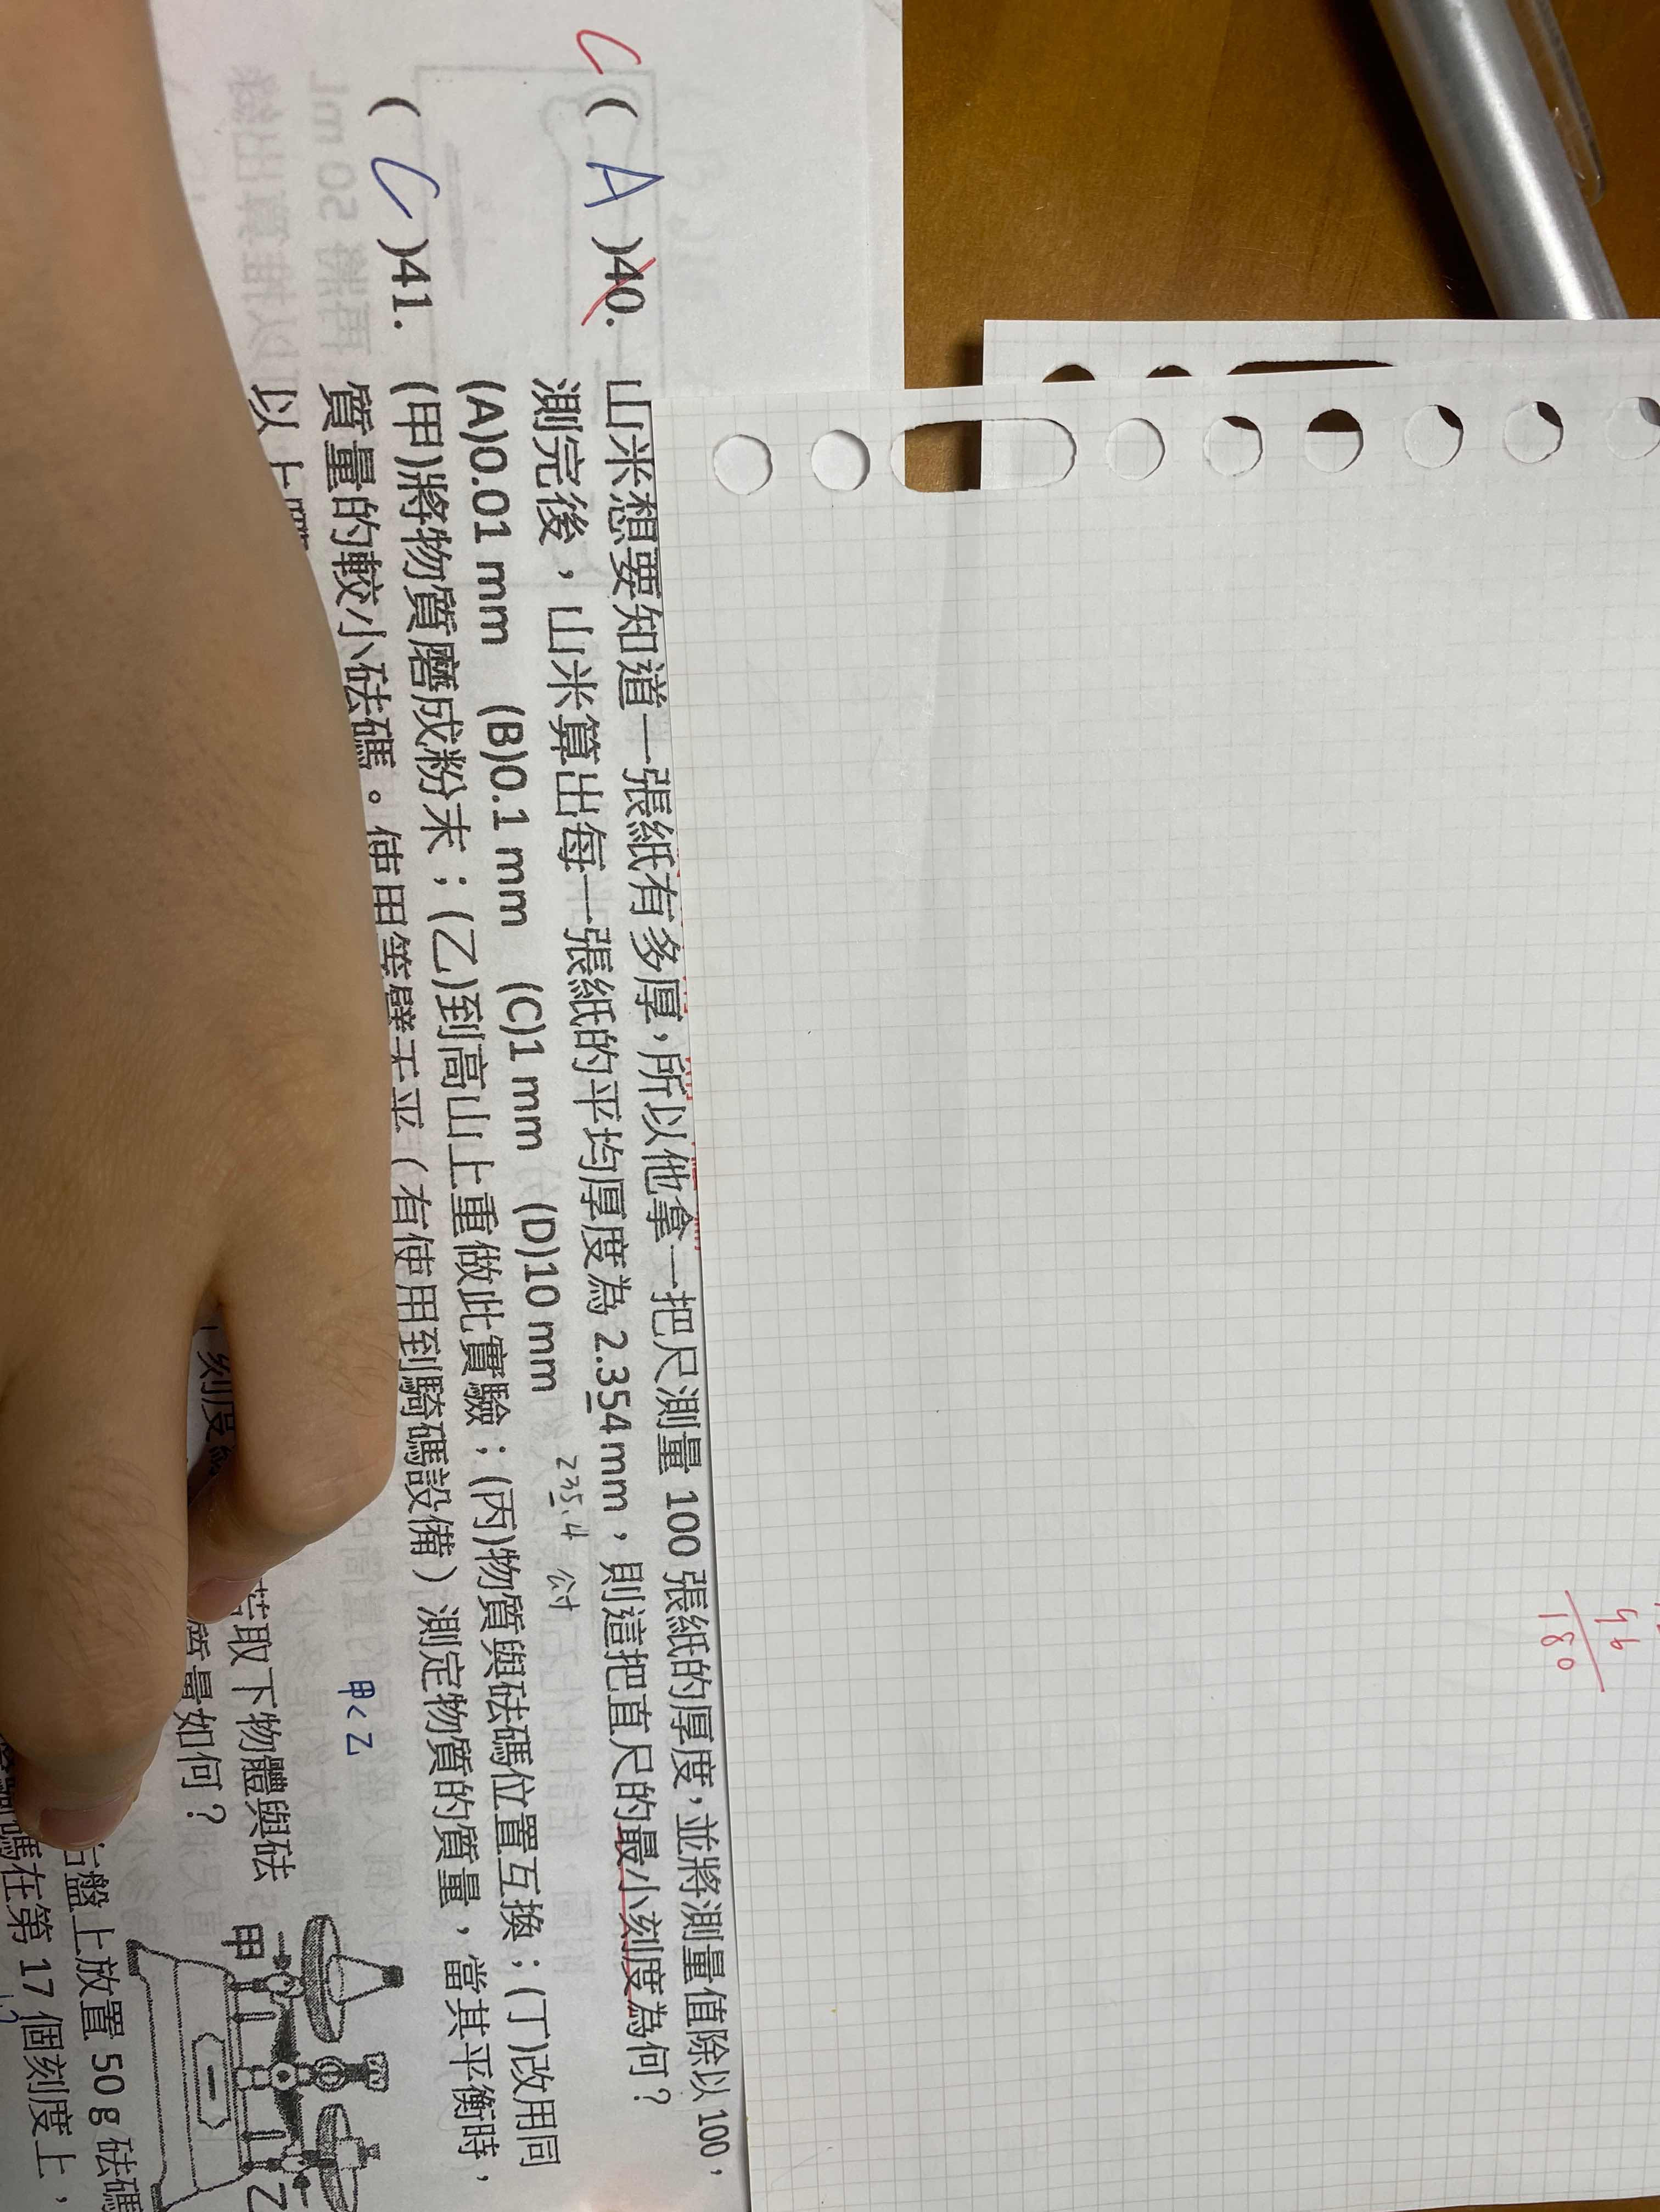 C ( A )40. 山米想要知道一張紙有多厚，所以他拿一把尺測量 100 張紙的厚度，並將測量值除以 100，
測完後，山米算出每一張紙的平均厚度為 2.354 mm，則這把直尺的最小刻度為何？
(A)0.01 mm (B)0.1 mm (C)1 mm (D)10 mm
235.4
( C )41. (甲)將物質磨成粉末；(乙)到高山上重做此實驗；(丙)物質與砝碼位置互換；(丁)改用同
質量的較小砝碼。使用等臂天平（有使用到騎碼設備）測定物質的質量，當其平衡時，
以上
甲<乙
取下物體與砝
質量如何？
甲
乙
刻度
盤上放置 50 g 砝碼
碼在第 17 個刻度上，
180